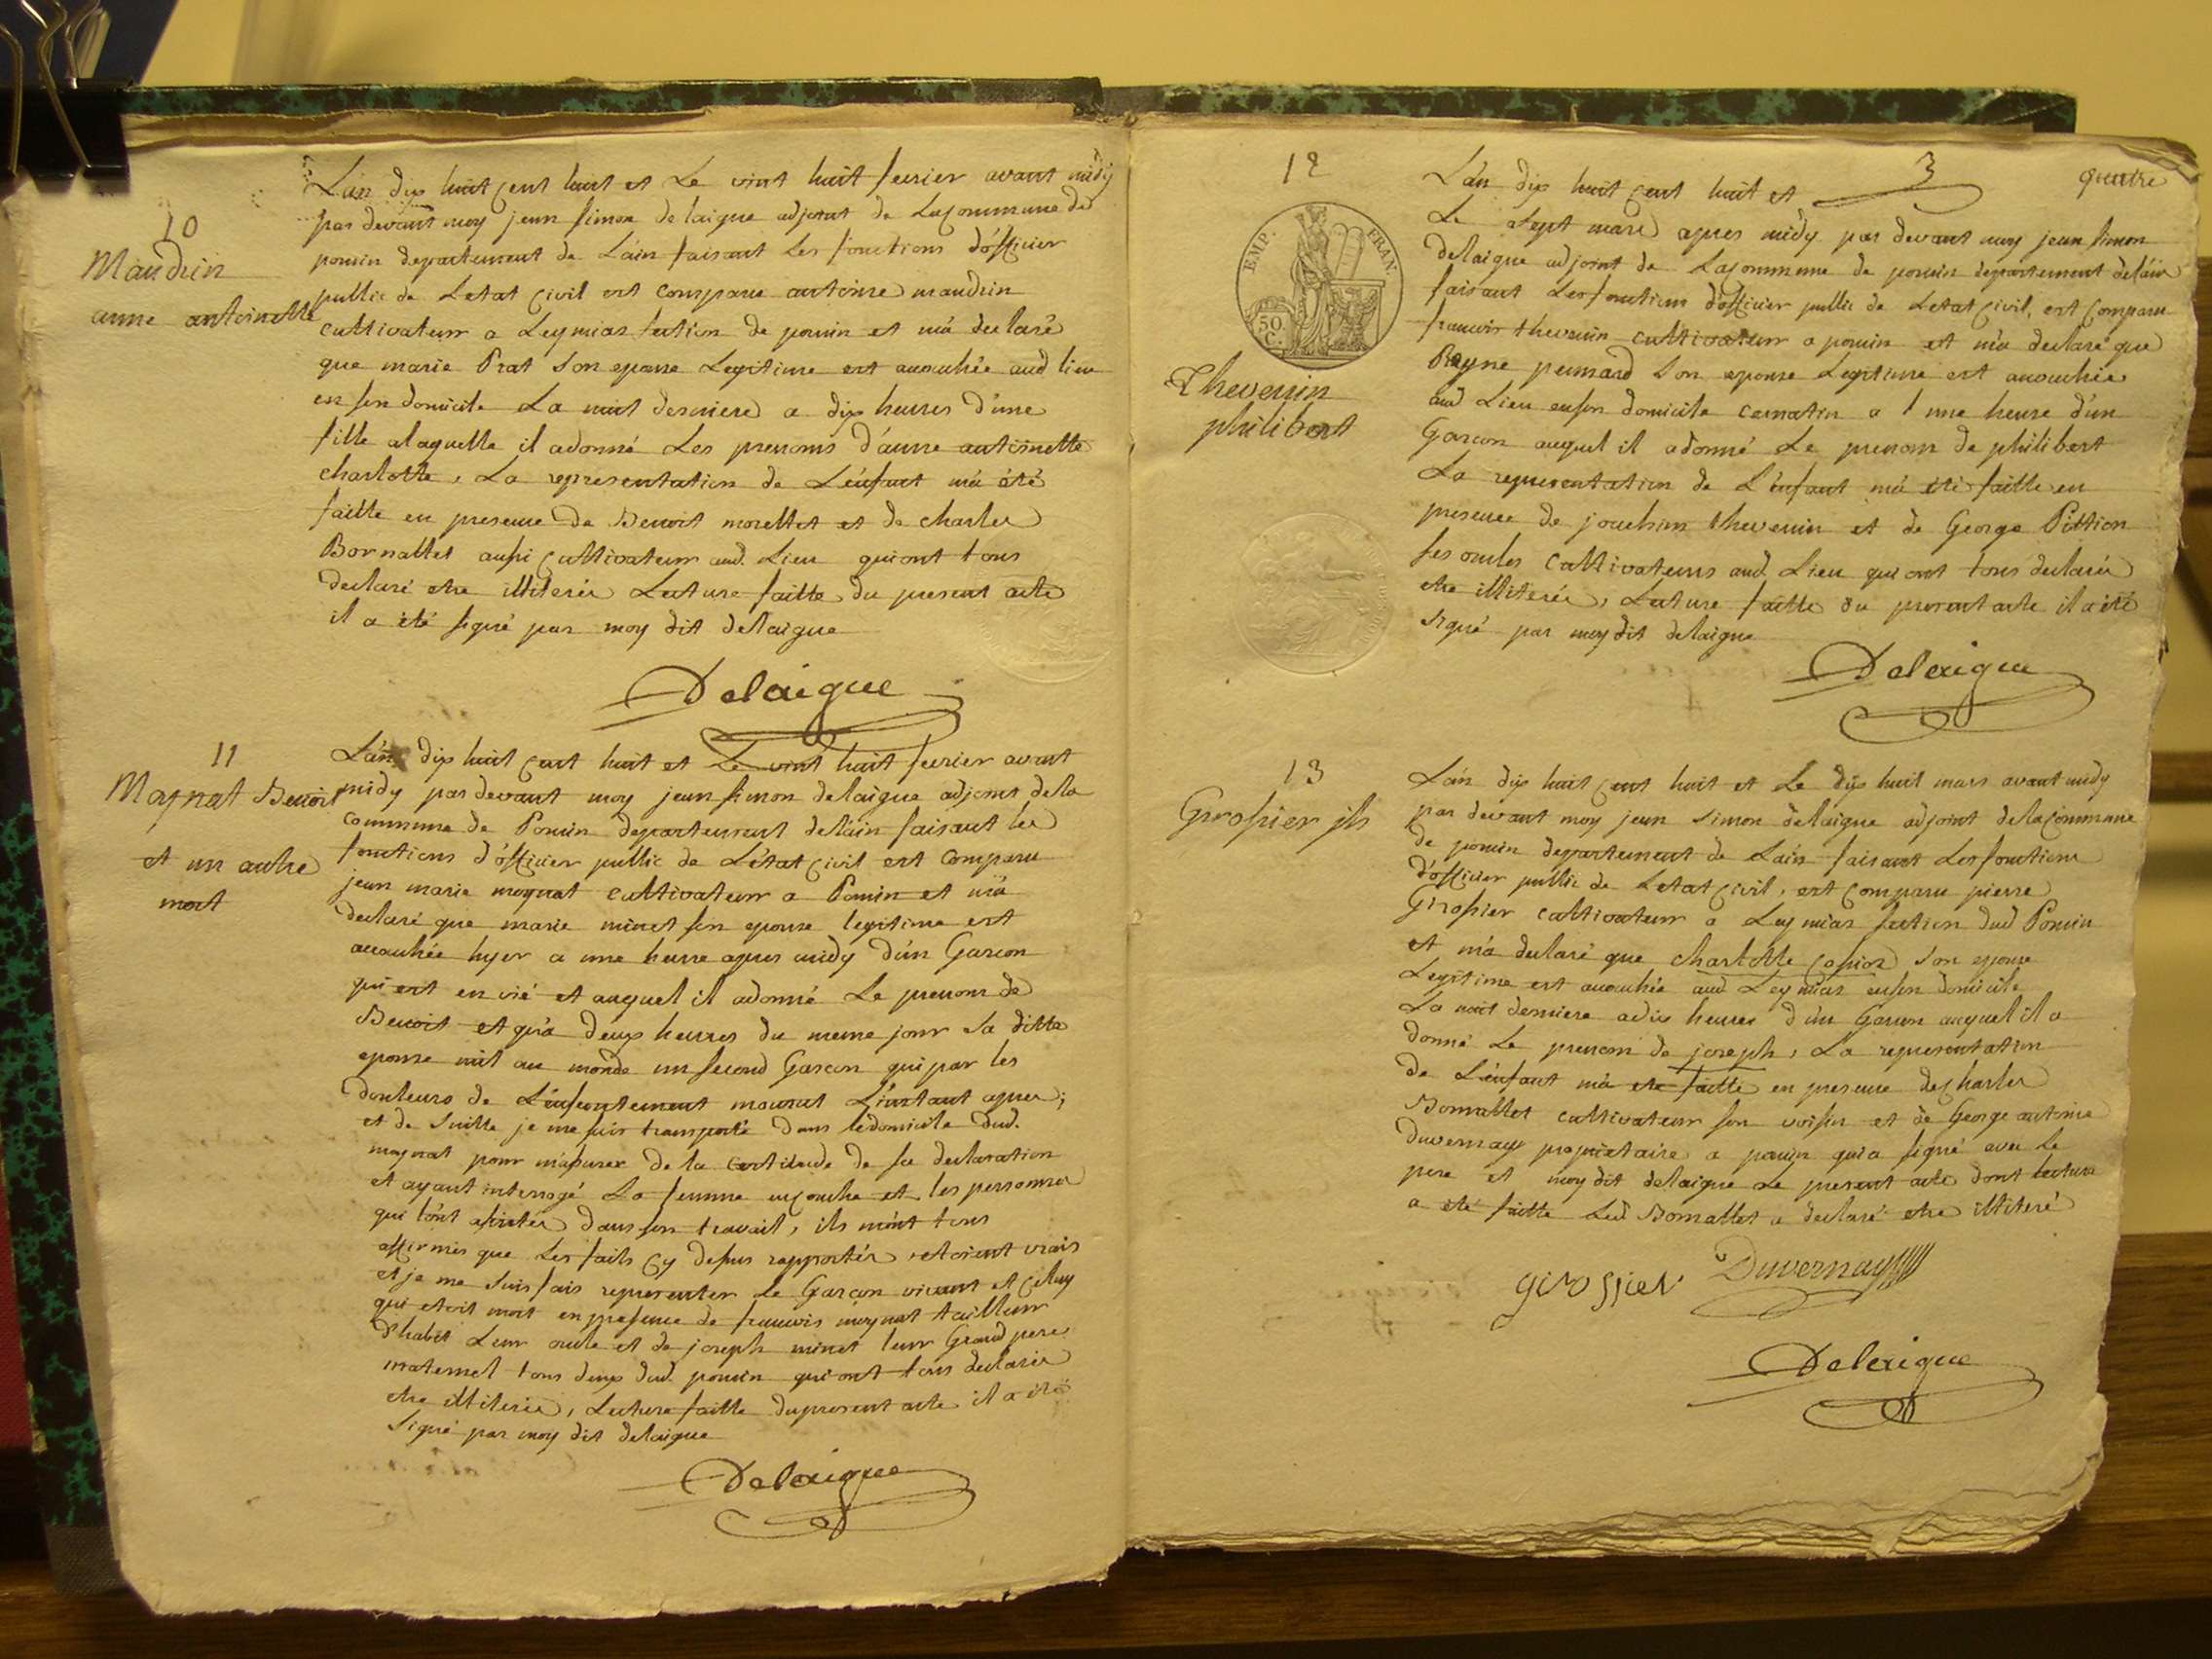 10
Mandrin
anne antoinette
L'an dix huit cent huit et Le vint huit fevrier avant midy
par devant moy jean simon delaigue adjoint de Lacommune de
poncin departement de L'ain faisant Les fonctions d'officier
public de Letat Civil est Comparu antoine mandrin
cultivateur a Leymiar section de poncin et m'a declaré
que marie Prat son epouse Legitime est accouchée aud lieu
en son domicile La nuit derniere a dix heures d'une
fille alaquelle il adonné Les prenoms d'anne antoinette
charlotte, La representation de L'enfant m'a été
faitte en presence de Benoit morellet et de charles
Bornallet aussi Cultivateur aud. Lieu qui ont tous
declaré etre illiterés Lecture faitte du present acte
il a été signé par moy dit delaigue
Delaigue
11
Moynat Benoit
et un autre
mort
L'an dix huit Cent huit et Le vint huit fevrier avant
midy par devant moy jean simon delaigue adjoint dela
Commune de Poncin departement delain faisant les
fonctions d'officier public de L'etat Civil est Comparu
jean marie moynat cultivateur a Poncin et m'a
declaré que marie minet son epouse legitime est
accouchée hyer a une heure apres midy d'un Garcon
qui est en vie et auquel il adonné Le prenom de
Benoit et qu'a deux heures du meme jour sa ditte
epouse mit au monde un second Garcon qui par les
douleurs de L'enfentement mourut L'instant apres;
et de suitte je me suis transporté dans ledomicile dud.
moynat pour m'assurer de la Certitude de sa declaration
et ayant interrogé La femme encouche et les personnes
qui l'ont assistés dans son travail, ils m'ont tous
affirmés que Les faits Cy dessus rapportés, etoient vrais
et je me suis fais representer Le Garcon vivant et Celuy
qui etoit mort en presence de francois moynat tailleur
d'habit Leur oncle et de joseph minet leur Grand pere
maternel tous deux dud. poncin qui ont tous declarés
etre illiterés, Lecture faitte dupresent acte il a été
signé par moy dit delaigue
Delaigue
3
quatre
12
EMP. FRAN.
50 C.
Thevenin
philibert
L'an dix huit Cent huit et
Le sept mars apres midy par devant moy jean simon
delaigue adjoint de Lacommune de poncin departement delain
faisant Lesfonctions d'officier public de Letat Civil, est Comparu
francois thevenin cultivateur a poncin et m'a declaré que
Reyne peinard son epouse Legitime est accouchée
aud Lieu enson domicile cematin a 1 une heure d'un
Garcon auquel il adonné Le prenom de philibert
La representation de L'enfant m'a été faitte en
presence de joachim thevenin et de George Pittion
ses oncles Cultivateurs aud. Lieu qui ont tous declarés
etre illiterés, Lecture faitte du present acte il a été
signé par moy dit delaigue
Delaigue
13
Girossier jh
L'an dix huit Cent huit et Le dix huit mars avant midy
par devant moy jean simon delaigue adjoint delaCommune
de poncin departement de Lain faisant Lesfonctions
d'officier public de Letat Civil, est Comparu pierre
Girossier Cultivateur a Leymiar section dud Poncin
et m'a declaré que charlotte son epouse
Legitime est accouchée aud Leymiar enson domicile
La nuit derniere adix heures d'un Garcon auquel il a
donné Le prenom de joseph, La representation
de L'enfant m'a ete faitte en presence de charles
Bornallet cultivateur son voisin et de George antoine
Duvernay proprietaire a poncin qui a signé avec Le
pere et moy dit delaigue Le present acte dont lecture
a été faitte Led Bornallet a declaré etre illiteré
girossier Duvernay
Delaigue